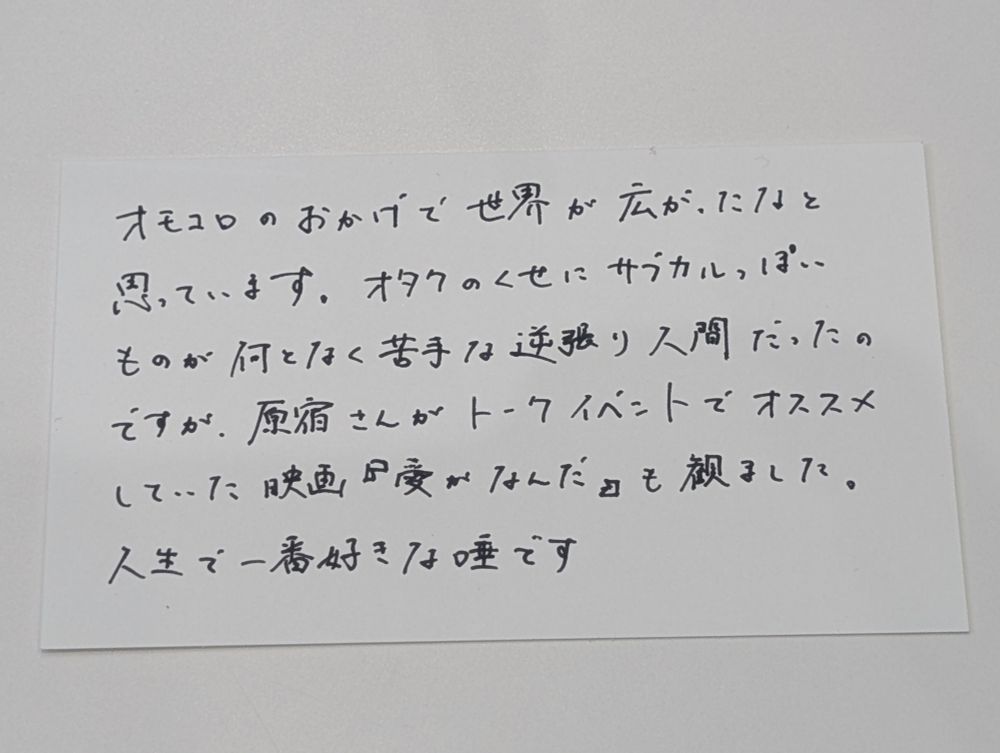 オモコロのおかげで世界が広がったなと
思っています。オタクのくせにサブカルっぽい
ものが何となく苦手な逆張り人間だったの
ですが、原宿さんがトークイベントでオススメ
していた映画『愛がなんだ』も観ました。
人生で一番好きな唾です